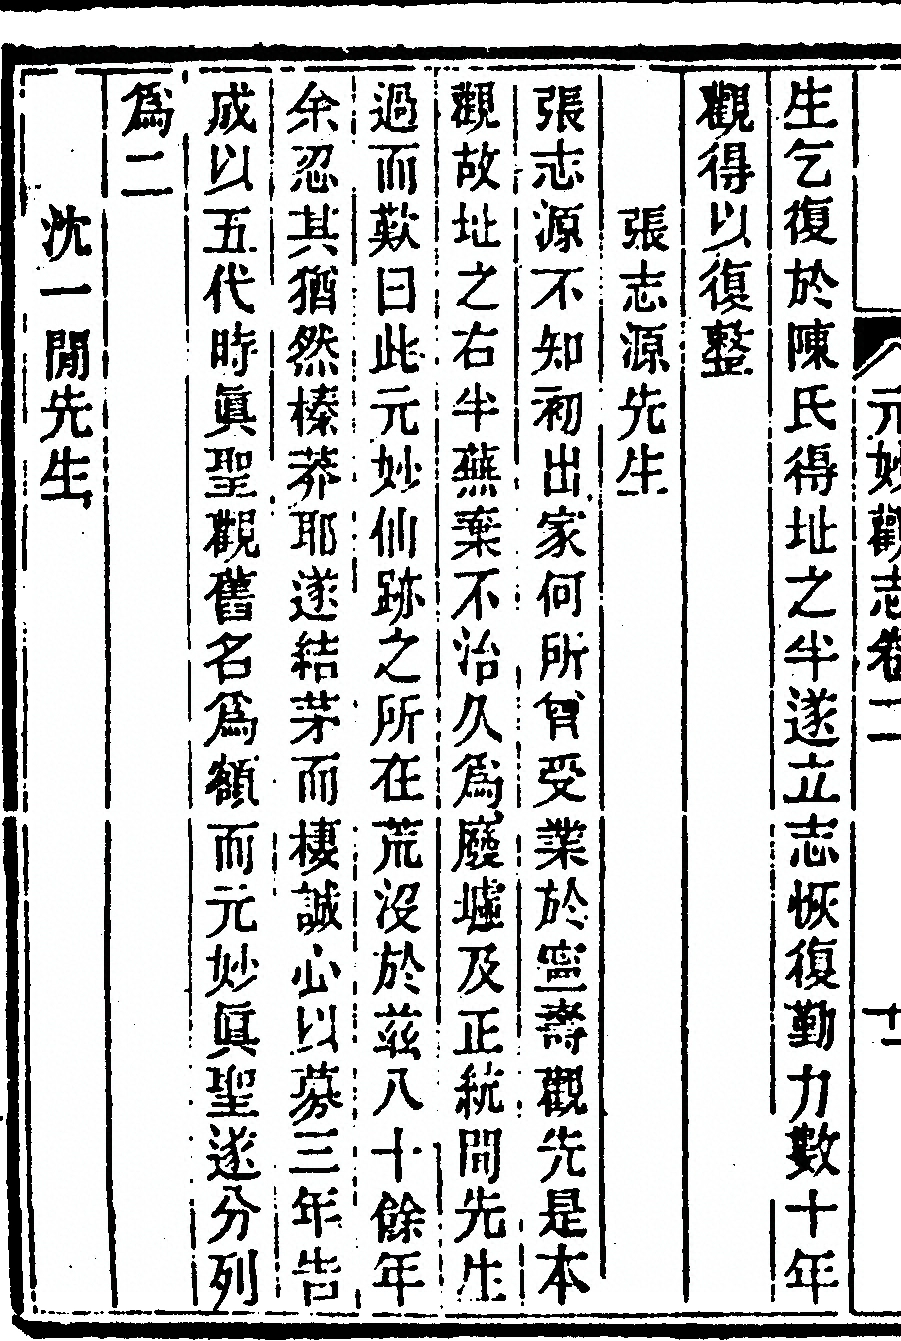 元妙觀志卷二
十一
生乞復於陳氏得址之半遂立志恢復勤力數十年
觀得以復整
張志源先生
張志源不知初出家何所曾受業於寧壽觀先是本
觀故址之右半蕪棄不治久爲廢墟及正統間先生
過而歎曰此元妙仙跡之所在荒沒於茲八十餘年
余忍其猶然榛莽耶遂結茅而棲誠心以募三年告
成以五代時眞聖觀舊名爲額而元妙眞聖遂分列
爲二
沈一閒先生